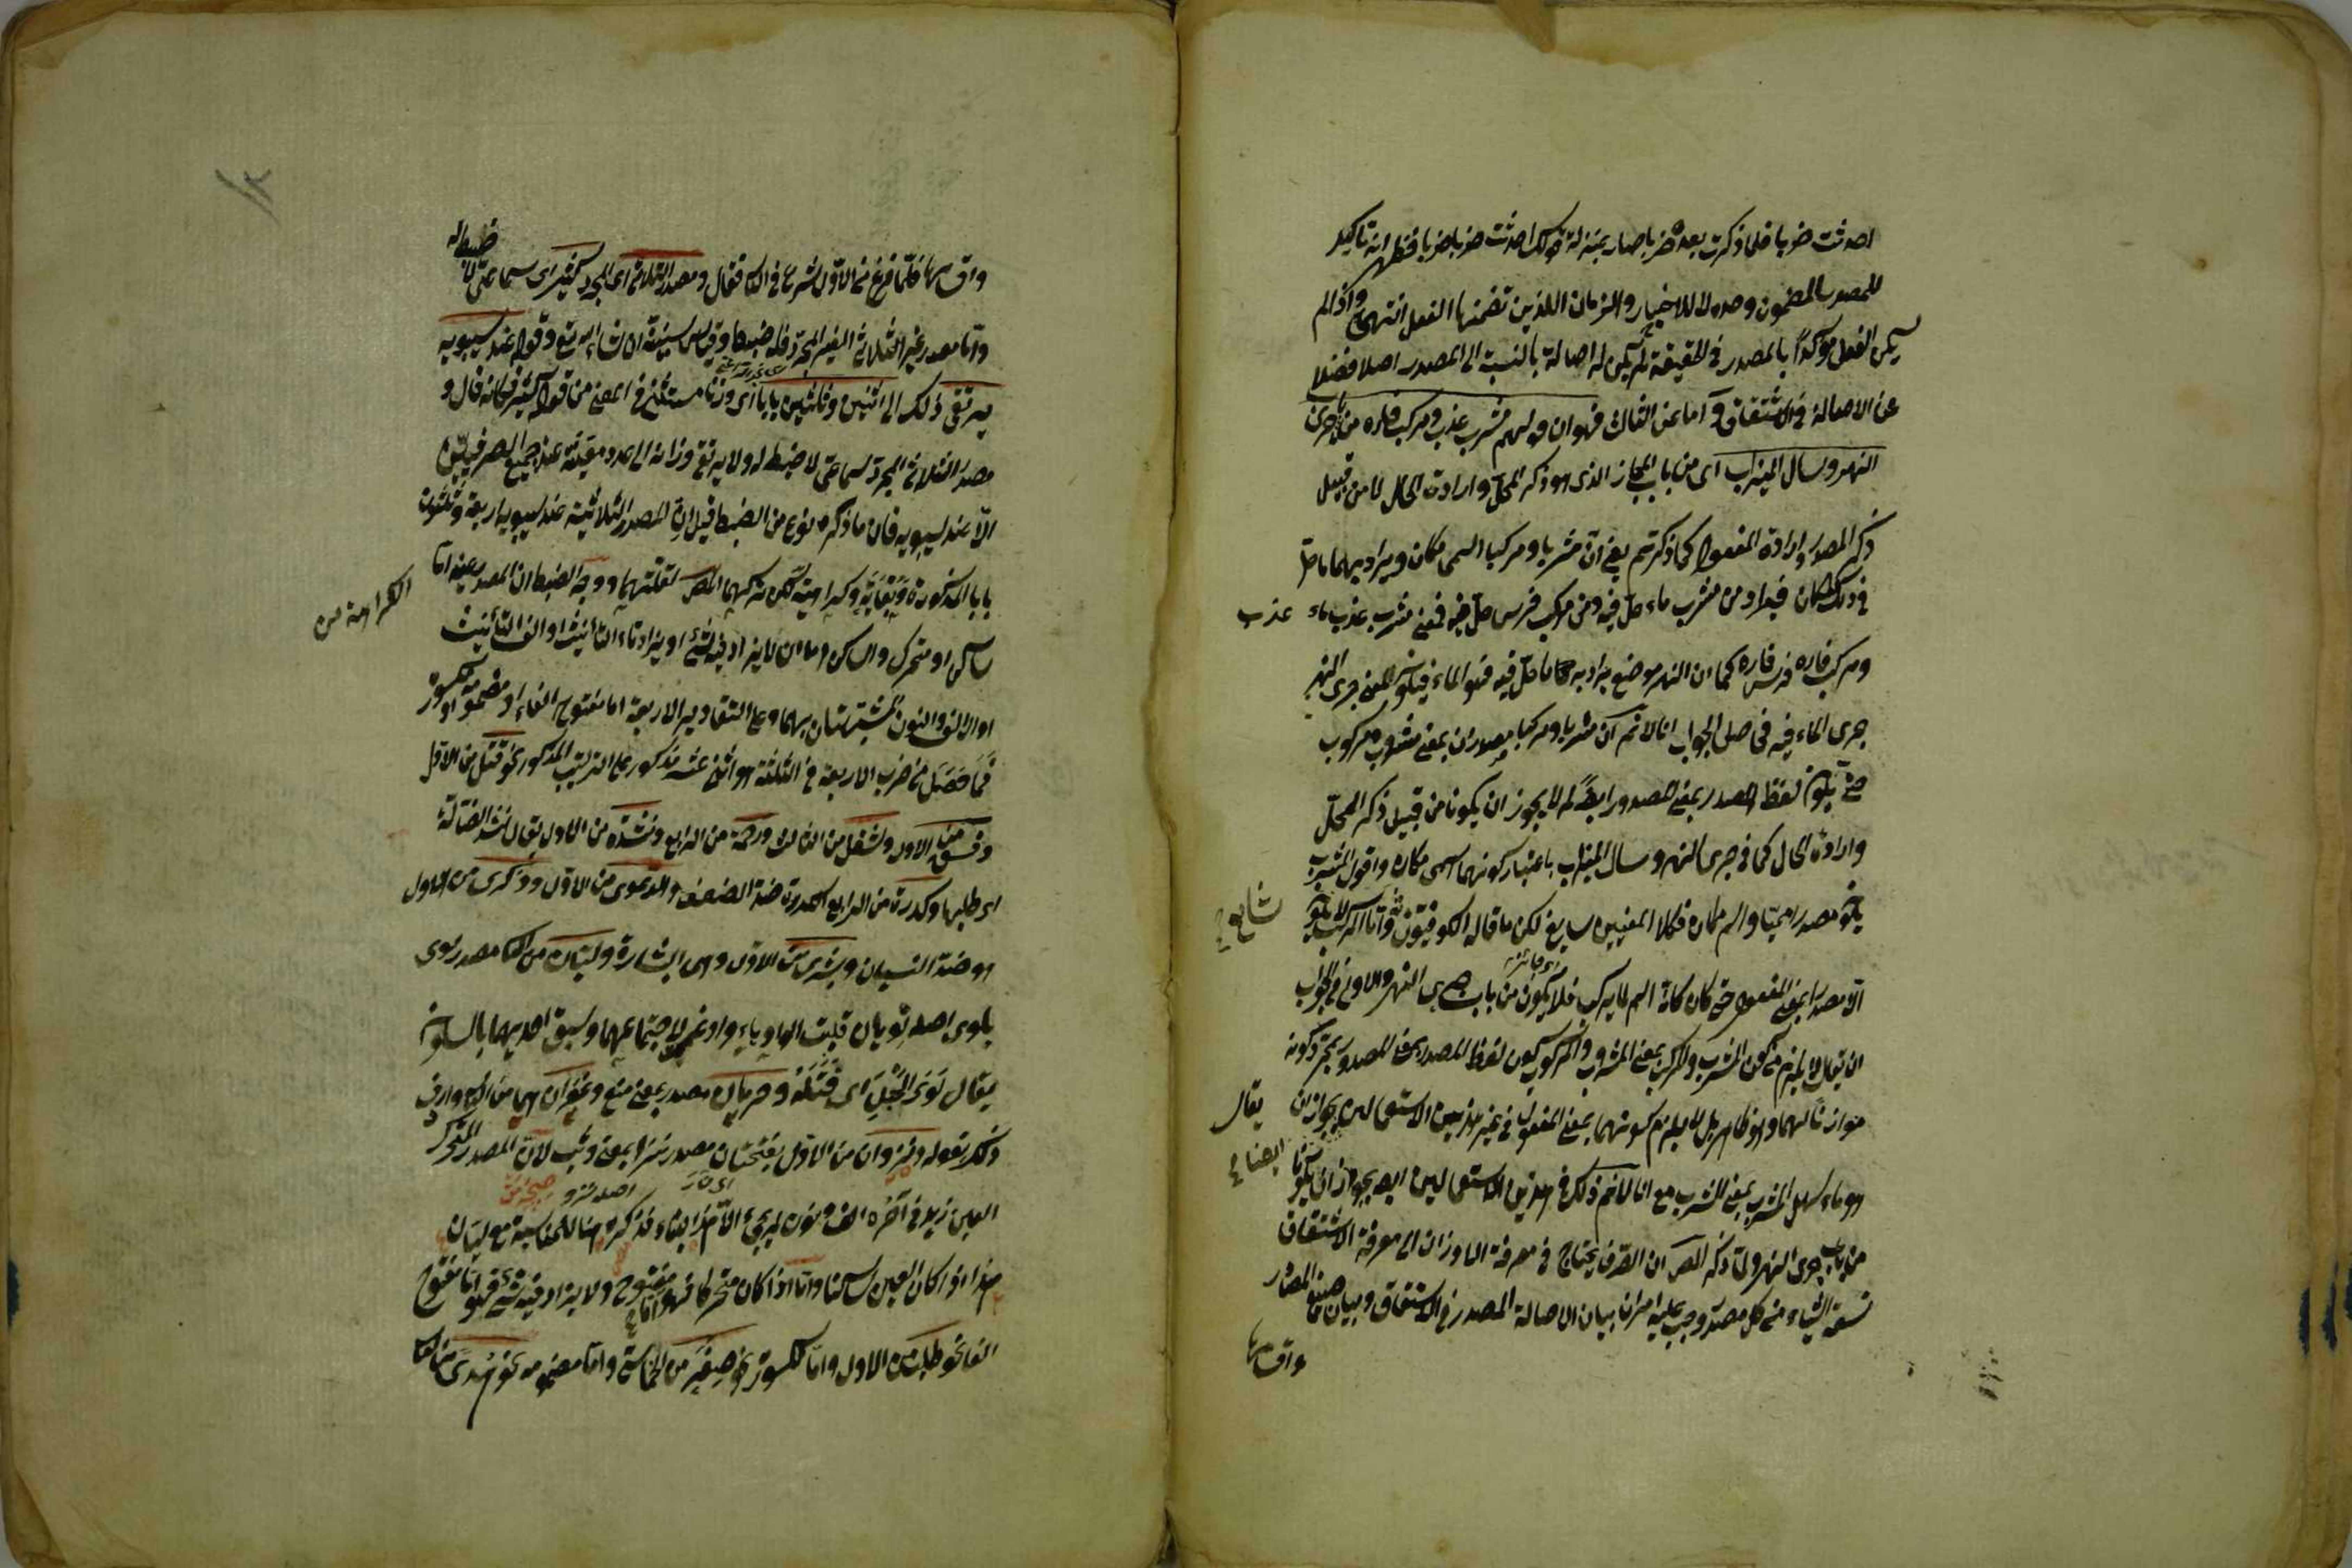 احدثت ضربا فلما ذكرت بعده ضربا صار بمنزلة قولك احدثت ضربا ضربا فظهر انه تاكيد
للمصدر المضمون وحده لا للاخبار والزمان اللذين تضمنهما الفعل انتهى واذا لم
يكن الفعل مؤكدا بالمصدر في الحقيقة لم يكن له اصالة بالنسبة الى المصدر اصلا فضلا
عن الاصالة في الاشتقاق واما عن الثالث فهو ان قولهم مشرب عذب ومركب فاره من جرى
النهر وسال الميزاب اى من باب المجاز الذى هو ذكر المحل وارادة الحال لا من قبيل
ذكر المصدر وارادة المفعول كما ذكرتم يعنى ان مشربا ومركبا اسمى مكان ويراد بهما ما حل
في ذلك المكان فيراد من مشرب ماء حل فيه ومن مركب فرس حل فيه فمعنى مشرب عذب ماء عذب
ومركب فاره فرس فاره كما ان النهر موضع يراد به ما حل فيه فهو الماء فيكون معنى جرى النهر
جرى الماء فيه فحاصل الجواب انا لا نم ان مشربا ومركبا مصدران بمعنى مشروب ومركوب
حتى يكون لفظ المصدر بمعنى المصدور ايضا لم لا يجوز ان يكونا من قبيل ذكر المحل
وارادة الحال كما في جرى النهر وسال الميزاب باعتبار كونهما اسمى مكان واقول المشرب
يكون مصدرا ميميا واسم مكان فكلا المعنيين سايغ لكن ما قاله الكوفيون واما المركب لا يكون
شايع
الا مصدرا بمعنى المفعول حتى كان كانه اسم لما يركب فلا يكون من باب جرى النهر والاولى في الجواب
اى جائز
ان يقال لا يلزم من كون المشرب والمركب بمعنى المشروب والمركوب كون لفظ المصدر بمعنى المصدور بمجرد كونه
موازنا لهما وهو ظاهر بل لا يلزم كونهما بمعنى المفعول في غير هذين الاستعمالين بجواز ان يقال
هو ماء سهل المشرب بمعنى الشرب مع انا لا نم ذلك في هذين الاستعمالين ايضا بجواز ان يكونا
ايضا
من باب جرى النهر ولما ذكر المص ان الصرف يحتاج في معرفة الاوزان الى معرفة الاشتقاق
تسعة اشياء من كل مصدر وجب عليه امران بيان الاصالة المصدر في الاشتقاق وبيان المصادر
واقسامها
١٢
واقسامها فلما فرغ من الاول شرع في الاخر فقال ومصدر الثلاثى اى المجرد كثير اى سماعى لا ضبط له
واما مصدر غير الثلاثى الغير المجرد فله ضبط وقياس سنبينه ان شاء الله تع وقوله عند سيبويه
يرتقى ذلك الى اثنين وثلثين بابا اى وزنا مستثنى في المعنى من قوله كثير فكانه قال و
مصدر الثلاثى المجرد سماعى لا ضبط له ولا يرتقى وزانه الى عدد معين عند جميع الصرفيين
الا عند سيبويه فان ما ذكره نوع من الضبط قيل ان المصدر الثلاثية عند سيبويه اربعة وثلثون
بابا المذكورة وبغاية وكراهية لكن تركهما المص لقلتهما ووجه الضبط ان المصدر عينه اما
الكراهة من
ساكن او متحرك والساكن اما ان لا يزاد فيه شئ او يزاد تاء التأنيث او الف التأنيث
او الالف والنون المشبهتان بهما وعلى التقادير الاربعة اما مفتوح الفاء او مضمومه او مكسوره
فما حصل من ضرب الاربعة في الثلثة اثنى عشر مذكور على الترتيب المذكور نحو قتل من الاول
وفسق من الاول وشغل من الثالث ورحمة من الرابع ونشدة من الاول يقال نشد الضالة
اى طلبها وكدرة من الرابع الكدرة ضد الصفو ودعوى من الاول وذكرى من الاول
هو ضد النسيان وبشرى من الاول وهى البشارة وليان من الثانى مصدر لوى
يلوى اصله لويان قلبت الواو ياء وادغم لاجتماعهما وسبق احديهما بالسكون
يقال لوى الحبل اى فتله وحرمان مصدر بمعنى منع وغفران هما من الثانى وارف
وذكر بقوله ونزوان من الاول بفتحتين مصدر نزا بمعنى وثب لان المصدر المتحرك
اصله نزو
العين زيد في آخره الف ونون لم يجئ الا هذا البناء فذكره هنا للمناسبة مع ليان
هذا اذا كان العين ساكنا واما اذا كان متحركا فهو اما مفتوح ولا يزاد فيه شئ فهو اما مفتوح
الفا نحو طلب من الاول واما مكسوره نحو صغر من الخامس واما مضمومه نحو هدى من الثانى